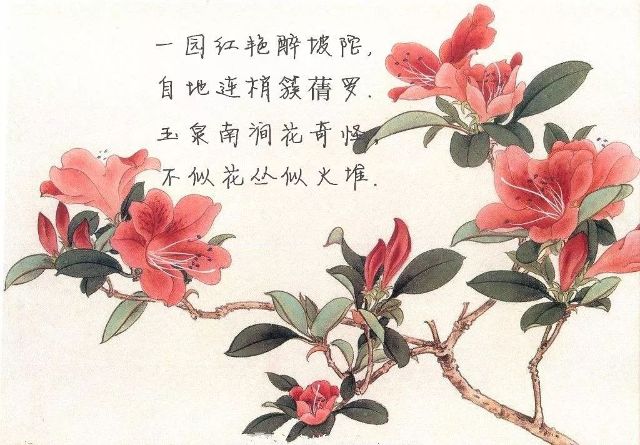 一园红艳醉坡陀,
自地连梢簇蒨罗.
玉泉南涧花奇怪,
不似花丛似火堆.